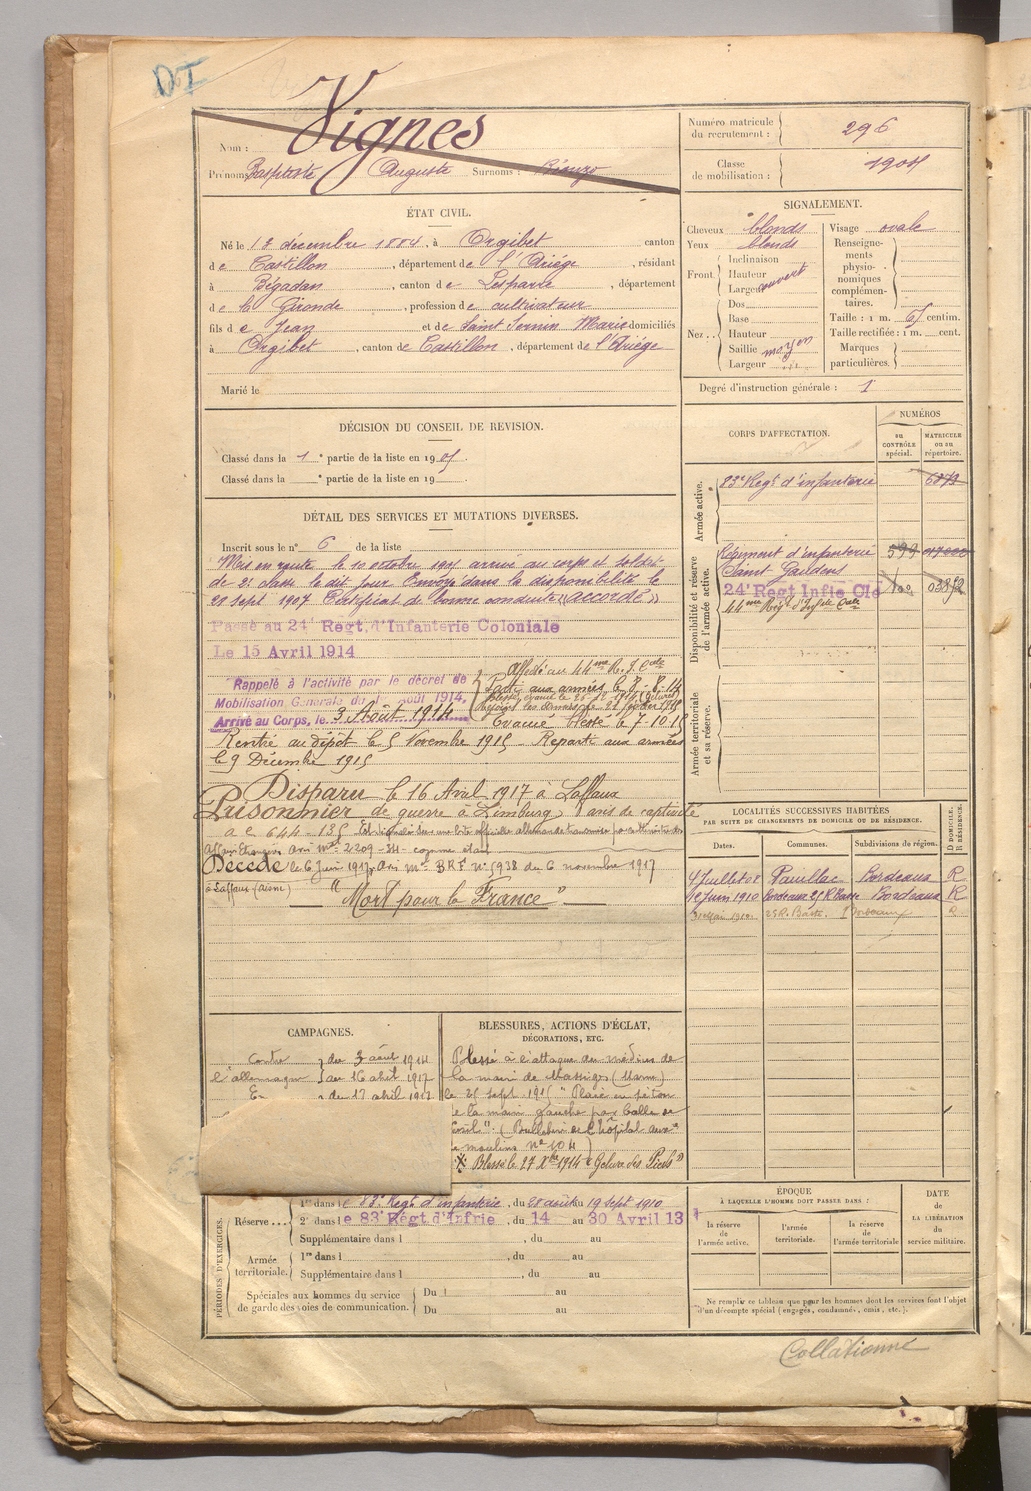 DI
Nom : Vignes
Prénoms Baptiste Auguste Surnoms :
Numéro matricule du recrutement : 296
Classe de mobilisation : 1904
ÉTAT CIVIL.
Né le 13 décembre 1884, à Orgibet canton
de Castillon, département de l'Ariége, résidant
à Bégadan, canton de Lesparre, département
de la Gironde, profession de cultivateur
fils de Jean et de Saint Sernin Marie domiciliés
à Orgibet, canton de Castillon, département de l'Ariége
Marié le
SIGNALEMENT.
Cheveux blonds
Yeux blonds
Front. Inclinaison
Hauteur
Largeur ouvert
Nez .. Dos
Base
Hauteur
Saillie moyen
Largeur
Visage ovale
Renseignements physionomiques complémentaires.
Taille : 1 m. 61 centim.
Taille rectifiée : 1 m. cent.
Marques particulières.
Degré d'instruction générale : 1
DÉCISION DU CONSEIL DE REVISION.
Classé dans la 1e partie de la liste en 1905.
Classé dans la e partie de la liste en 19
CORPS D'AFFECTATION.
NUMÉROS
au CONTRÔLE spécial.
MATRICULE ou au répertoire.
Armée active.
83e Régt d'infanterie 6873
Disponibilité et réserve de l'armée active.
Régiment d'infanterie 599
Saint Gaudens
24e Regt Infie Cle
44ème Régt d'Infie Cale
Armée territoriale et sa réserve.
DÉTAIL DES SERVICES ET MUTATIONS DIVERSES.
Inscrit sous le n° 6 de la liste
Mis en route le 10 octobre 1905 arrivé au corps et soldat
de 2e classe le dit jour Envoyé dans la disponibilité le
28 sept 1907 Certificat de bonne conduite « accordé »
Passé au 24e Regt d'Infanterie Coloniale
Le 15 Avril 1914
Rappelé à l'activité par le décret de
Mobilisation Générale du 1 août 1914.
Arrivé au Corps, le 3 Août 1914
Affecté au 44me R. I. Cale
Parti aux armées le 8-8-14
Evacué blessé le 7-10-15
Rentré au dépôt le 5 Novembre 1915 Reparti aux armées
le 9 Décembre 1915
Disparu le 16 Avril 1917 à Laffaux
Prisonnier de guerre à Limburg avis de captivité
Décédé le 6 Juin 1917, Avis ml BRF n° 5938 du 6 novembre 1917
à Laffaux (Aisne) " Mort pour la France "
LOCALITÉS SUCCESSIVES HABITÉES
PAR SUITE DE CHANGEMENTS DE DOMICILE OU DE RÉSIDENCE.
D DOMICILE. R RÉSIDENCE.
Dates. Communes. Subdivisions de région.
4 Juillet 08 Pauillac Bordeaux R
12 Juin 1910 Bordeaux 25 R Bordeaux R
31 Mai 1912 25 R. Bordeaux R
CAMPAGNES.
Contre l'allemagne du 3 août 1914
au 16 avril 1917
du 17 avril 1917
BLESSURES, ACTIONS D'ÉCLAT,
DÉCORATIONS, ETC.
Blessé à l'attaque du médius de
la main de Massiges (Marne)
le 25 sept 1915 " Plaie en séton
de la main gauche par balle de
fusil ". (Bulletin de l'hôpital
moulins n° 104)
Blessé le 27 Xbre 1914 « Gelure des Pieds »
PÉRIODES D'EXERCICES.
Réserve ... 1re dans le 83e Régt d'infanterie, du 28 août au 19 sept 1910
2e dans le 83e Régt d'Infrie, du 14 au 30 Avril 13
Supplémentaire dans l , du au
Armée territoriale. 1re dans l , du au
Supplémentaire dans l , du au
Spéciales aux hommes du service de garde des voies de communication. Du au
Du au
ÉPOQUE
À LAQUELLE L'HOMME DOIT PASSER DANS :
la réserve de l'armée active.
l'armée territoriale.
la réserve de l'armée territoriale
DATE de LA LIBÉRATION du service militaire.
Ne remplir ce tableau que pour les hommes dont les services font l'objet
d'un décompte spécial (engagés, condamnés, omis, etc.).
Collationné